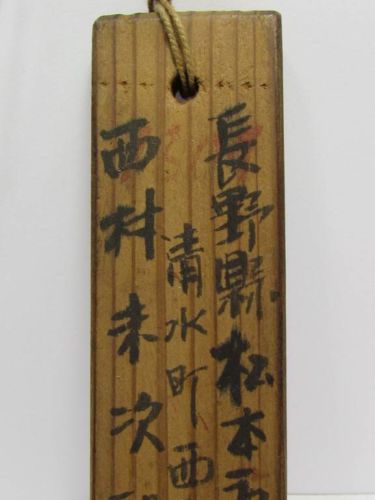 長野縣松本
清水町西
西村末次